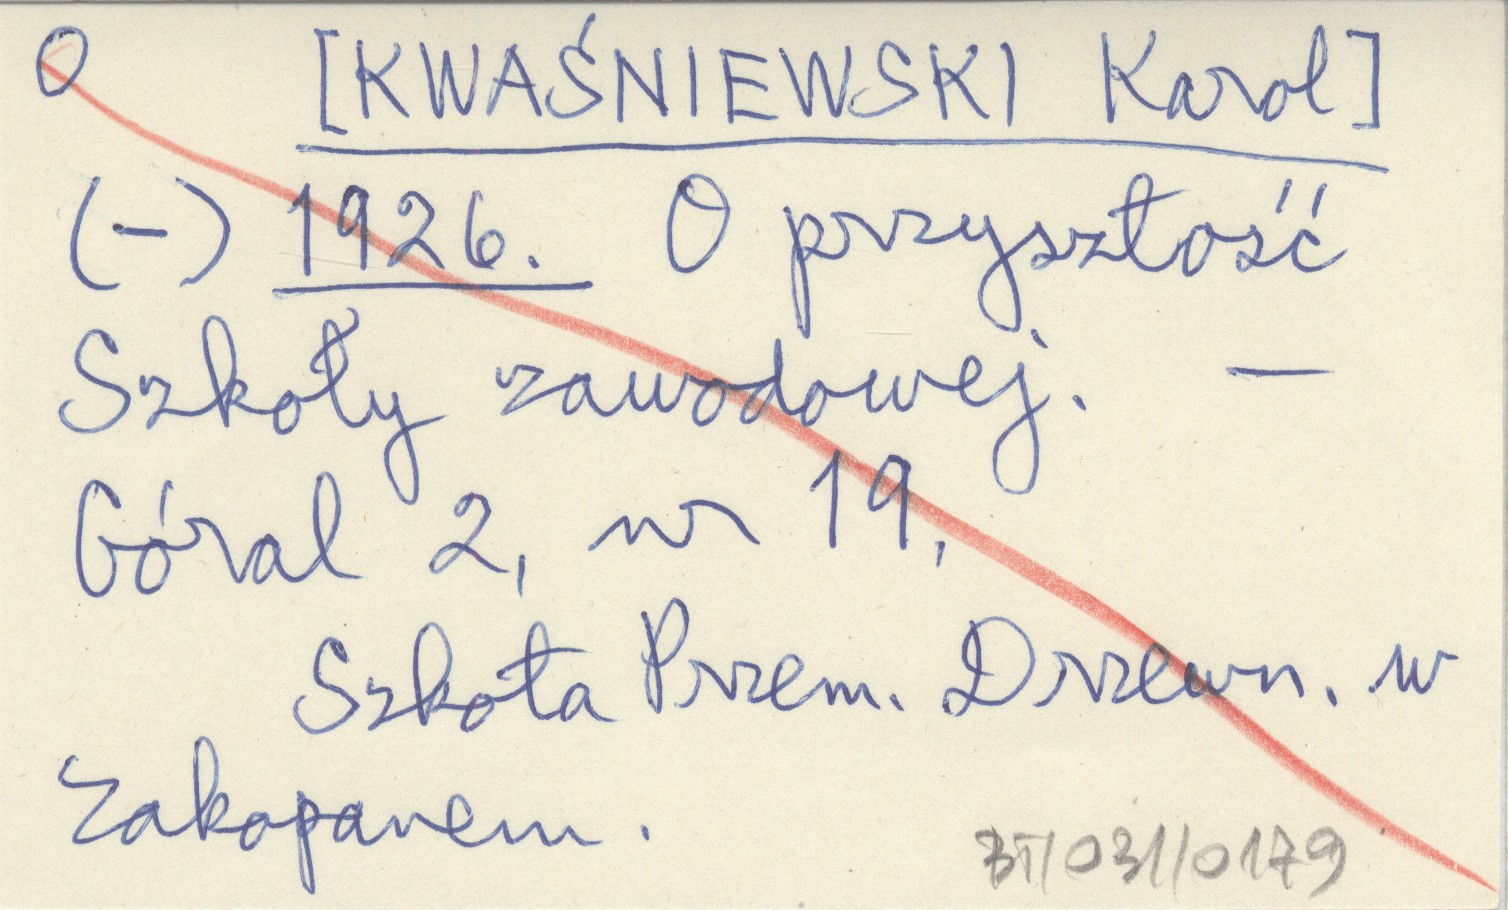 O [KWAŚNIEWSKI Karol]
(-) 1926. O przyszłość
Szkoły zawodowej. —
Góral 2, nr 19,
Szkoła Przem. Drzewn. w
Zakopanem.
BT/031/0179